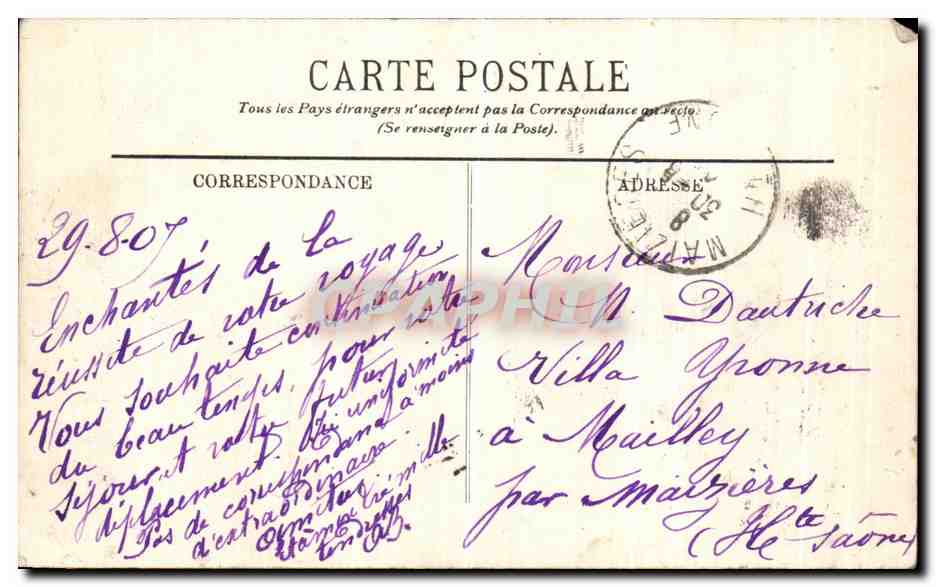 CARTE POSTALE
Tous les Pays étrangers n'acceptent pas la Correspondance au recto
(Se renseigner à la Poste).
CORRESPONDANCE
29-8-07
Enchantés de la
réussite de votre voyage
Vous souhaite continuation
du beau temps, pour votre
séjour et votre futur
déplacement. uniformité
Pas de correspondant à moins
d'extraordinaire.
Amitiés
famille
ADRESSE
Monsieur
M. Dautriche
Villa Yvonne
à Mailley
par Maizières
(Hte Saône)
MAIZIERES
CPAPHIL